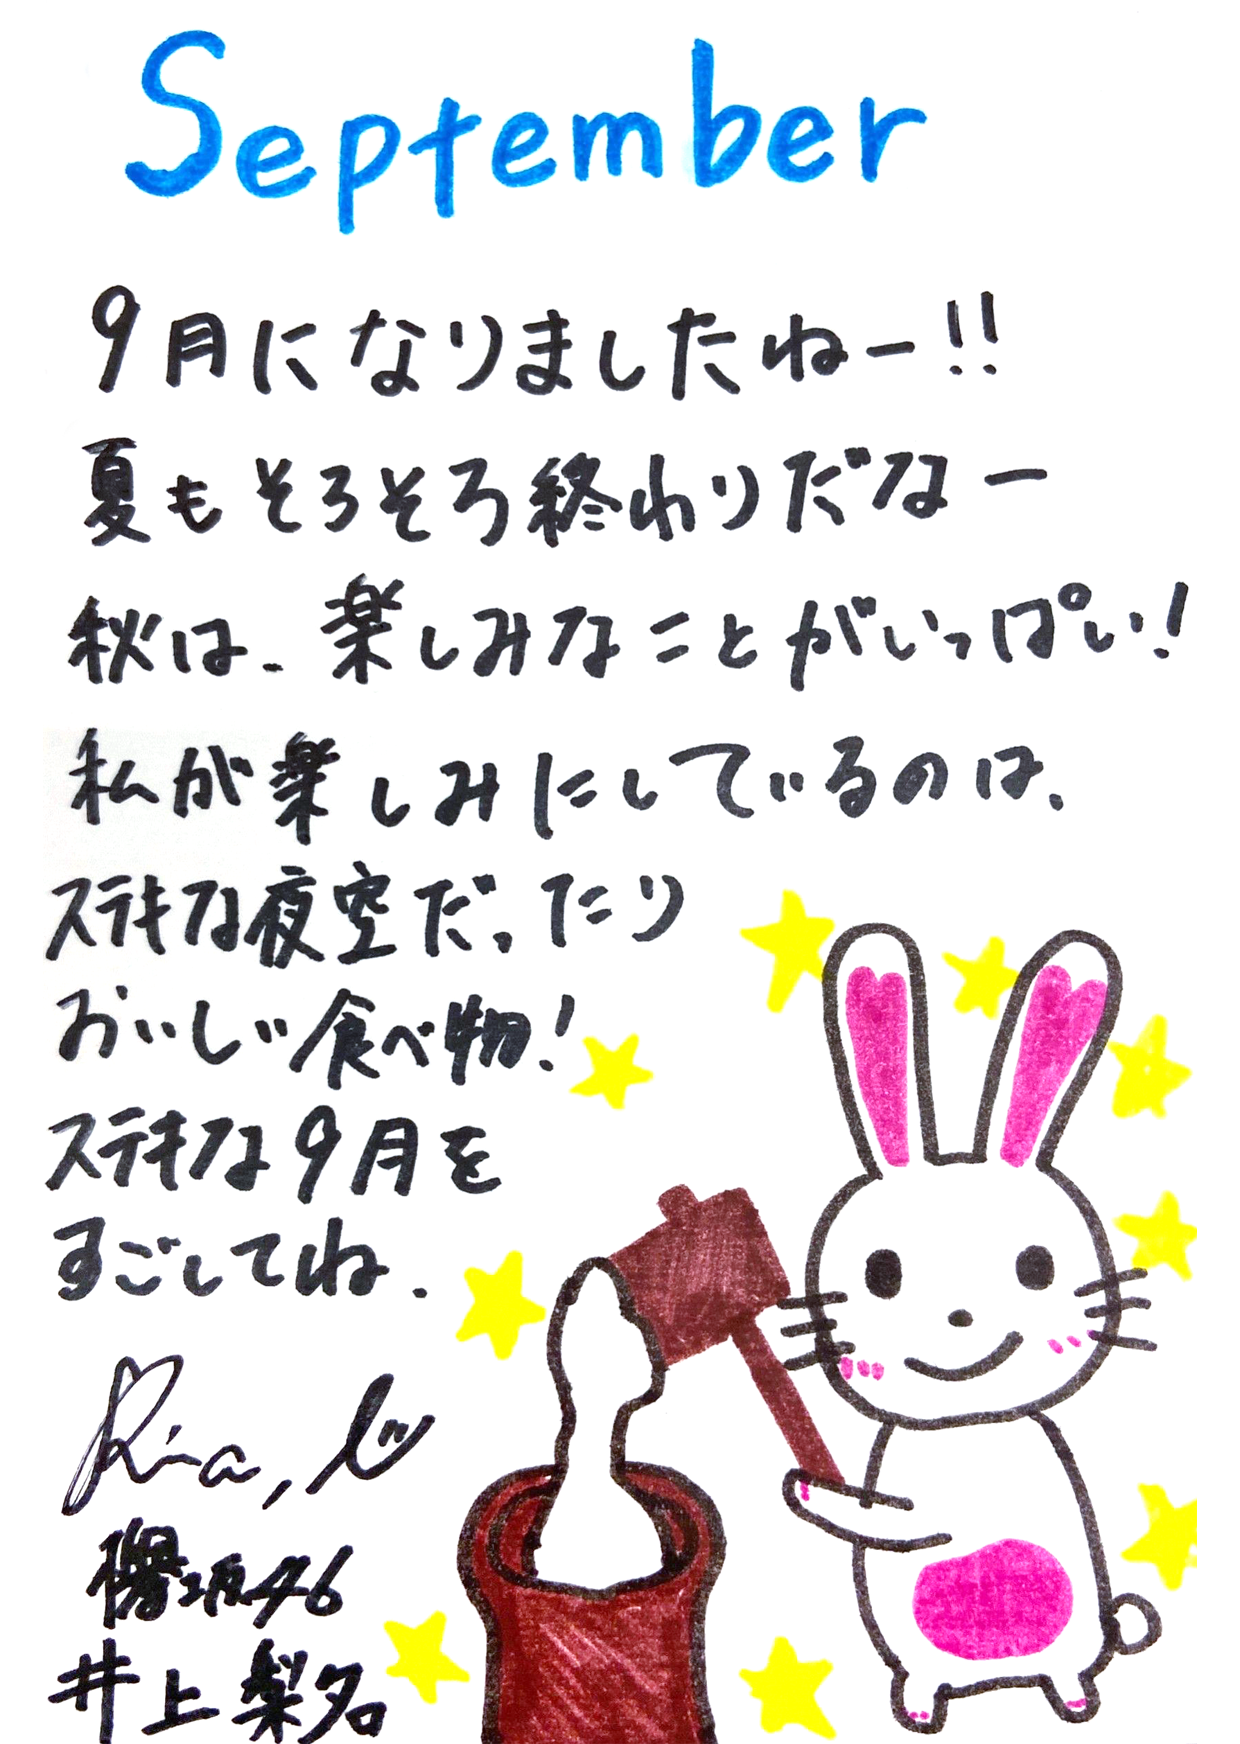 September
9月になりましたねー!!
夏もそろそろ終わりだなー
秋は、楽しみなことがいっぱい!
私が楽しみにしているのは、
ステキな夜空だったり
おいしい食べ物!
ステキな9月を
すごしてね.
Rina, I
欅坂46
井上梨名